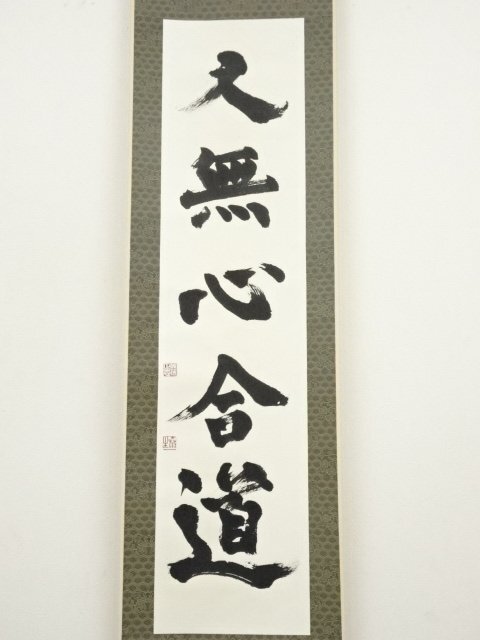 人無心合道